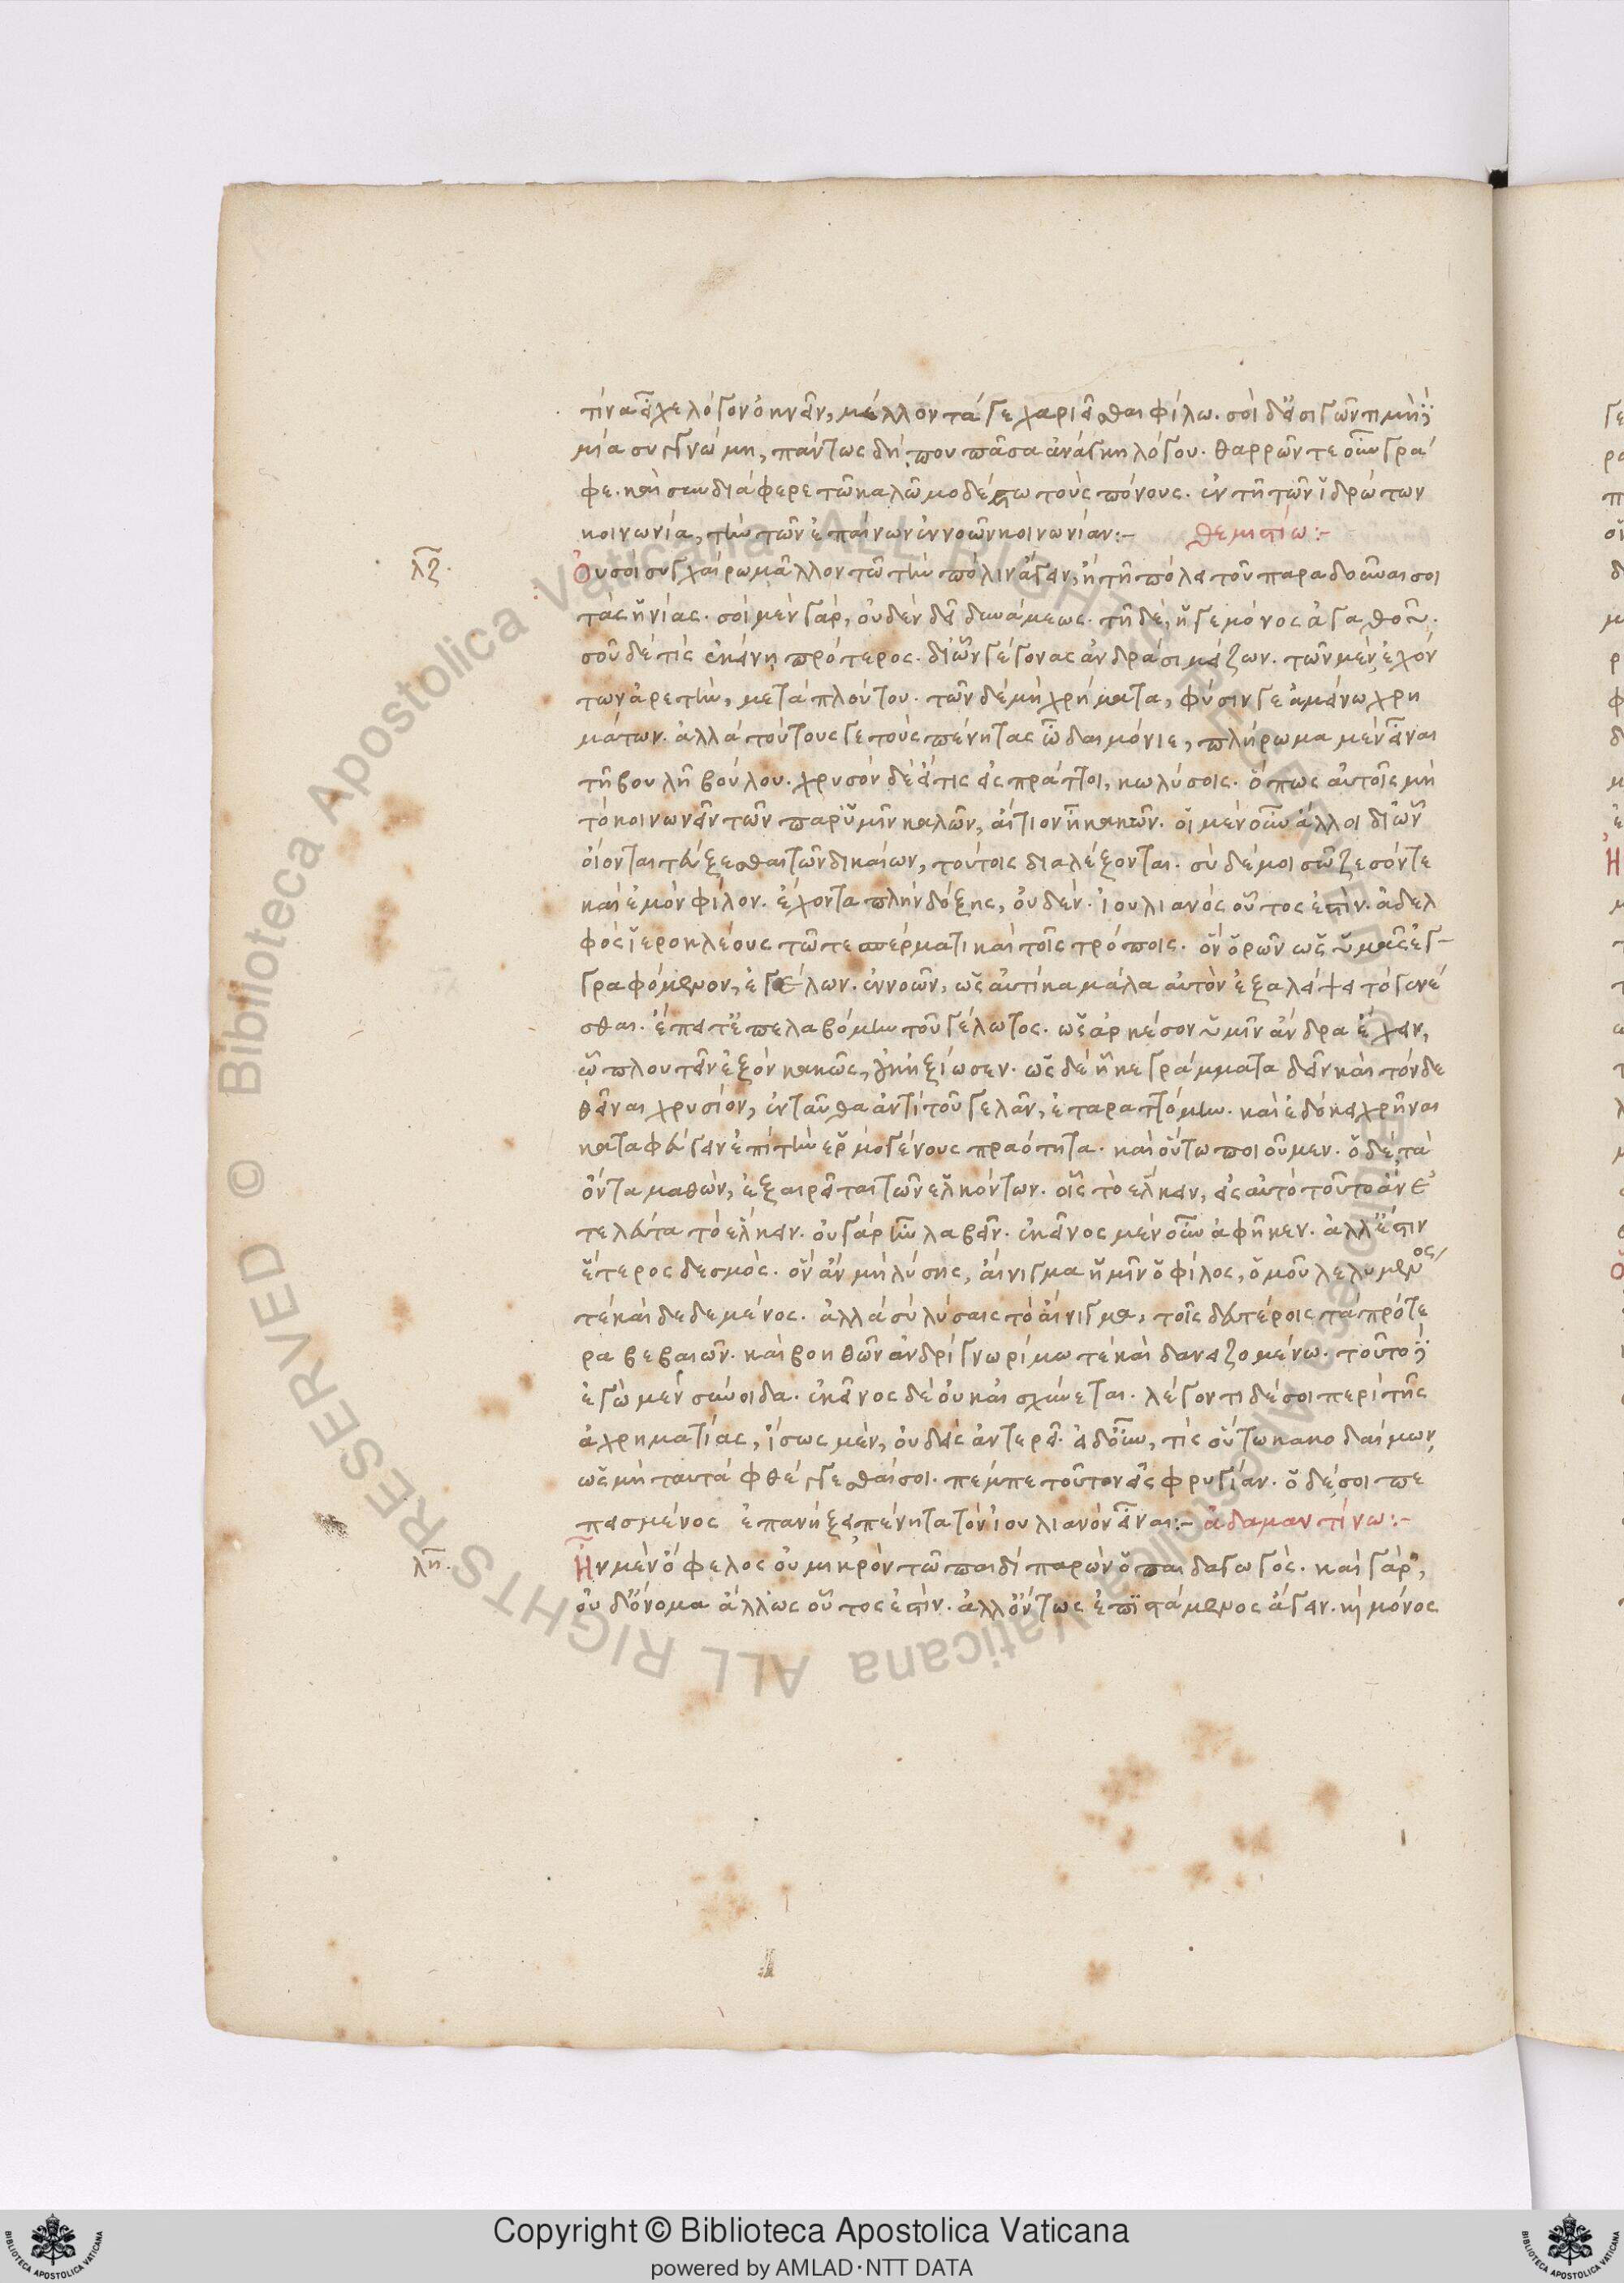 τίνα εἶχε λόγον ὀκνεῖν, μέλλοντά γε χαριεῖσθαι φίλω. σοὶ δ' εἰ σιγῶντι μὴ
μία συγγνώμη, πάντως δή που πᾶσα ἀνάγκη λόγου. θαρρῶν τε οὖν γρά
φε. καὶ συνδιάφερε τῶ καλῶ μοδέστω τοὺς πόνους. ἐν τῆ τῶν ἱδρώτων
κοινωνία, τὴν τῶν ἐπαίνων ἐννοῶν κοινωνίαν:- θεμιστίω:-
λζ.
Οὐ σοὶ συγχαίρω μᾶλλον τῶ τὴν πόλιν ἄγειν, ἢ τῆ πόλει τοῦ παραδοῦναι σοι
τὰς ἡνίας. σοὶ μὲν γὰρ, οὐδὲν δεῖ δυνάμεως. τῆ δὲ, ἡγεμόνος ἀγαθοῦ.
σοῦ δὲ τίς ἐκείνη πρότερος. δι' ὧν γέγονας ἀνδράσι μείζων. τῶν μὲν ἐχόν
των ἀρετὴν, μετὰ πλούτου. τῶν δὲ μὴ χρήματα, φύσιν γε ἀμείνω χρη
μάτων. ἀλλὰ τούτους γε τοὺς πένητας ὦ δαιμόνιε, πλήρωμα μὲν εἶναι
τῆ βουλῆ βούλου. χρυσὸν δὲ εἴ τις εἰσπράττοι, κωλύσοις. ὅπως αὐτοῖς μὴ
τὸ κοινωνεῖν τῶν παρ' ὑμῖν καλῶν, αἴτιον ἦ κακῶν. οἱ μὲν οὖν ἄλλοι δι' ὧν
οἴονται τεύξεσθαι τῶν δικαίων, τούτοις διαλέξονται. σὺ δέ μοι σῶζε σόν τε
καὶ ἐμὸν φίλον. ἔχοντα πλὴν δόξης, οὐδέν. ἰουλιανὸς οὗτος ἐστὶν. ἀδελ
φὸς ἱεροκλέους τῶ τε σπέρματι καὶ τοῖς τρόποις. ὃν ὁρῶν ὡς ὑμᾶς ἐγ
γραφόμενον, ἐγέλων. ἐννοῶν, ὡς αὐτίκα μάλα αὐτὸν ἐξαλείψει τὸ γενέ
σθαι. ἔπειτ' ἐπελαβόμην τοῦ γέλωτος. ὡς ἀρκέσον ὑμῖν ἄνδρα ἔχειν,
ὧ πλουτεῖν ἐξὸν κακῶς, οὐκ ἠξίωσεν. ὡς δὲ ἧκε γράμματα δεῖν καὶ τόνδε
θεῖναι χρυσίον, ἐνταῦθα ἀντὶ τοῦ γελᾶν, ἐταραττόμην. καὶ ἐδόκει χρῆναι
καταφεύγειν ἐπὶ τὴν ἑρμογένους πραότητα. καὶ οὕτω ποιοῦμεν. ὁ δὲ τὰ
ὄντα μαθὼν, ἐξαιρεῖται τῶν ἑλκόντων. οἷς τὸ ἕλκειν, εἰς αὐτὸ τοῦτο ἂν ἐ
τελεύτα τὸ ἕλκειν. οὐ γὰρ ἦν λαβεῖν. ἐκεῖνος μὲν οὖν ἀφῆκεν. ἀλλ' ἔστιν
ἕτερος δεσμός. ὃν ἂν μὴ λύσης, αἴνιγμα ἡμῖν ὁ φίλος, ὁμοῦ λελυμένος
τὲ καὶ δεδεμένος. ἀλλὰ σὺ λύσαις τὸ αἴνιγμα, τοῖς δευτέροις τὰ πρότε
ρα βεβαιῶν. καὶ βοηθῶν ἀνδρὶ γνωρίμω τὲ καὶ δανειζομένω. τοῦτο
ἐγὼ μὲν σύνοιδα. ἐκεῖνος δὲ οὐκ αἰσχύνεται. λέγοντι δέ σοι περὶ τῆς
ἀχρηματίας, ἴσως μὲν, οὐδεὶς ἀντερεῖ. εἰ δ' οὖν, τὶς οὕτω κακοδαίμων
ὡς μὴ ταυτὰ φθέγγεσθαί σοι. πέμπε τοῦτον εἰς φρυγίαν. ὁ δέ σοι πε
πεισμένος ἐπανήξει πένητα τὸν ἰουλιανὸν εἶναι:- ἀδαμαντίνω:-
λη.
Ἦν μὲν ὄφελος οὐ μικρὸν τῶ παιδὶ παρὼν ὁ παιδαγωγός. καὶ γὰρ,
οὐδ' ὄνομα ἄλλως οὗτος ἐστὶν. ἀλλ' ὄντως ἐπιστάμενος ἄγειν. καὶ μόνος